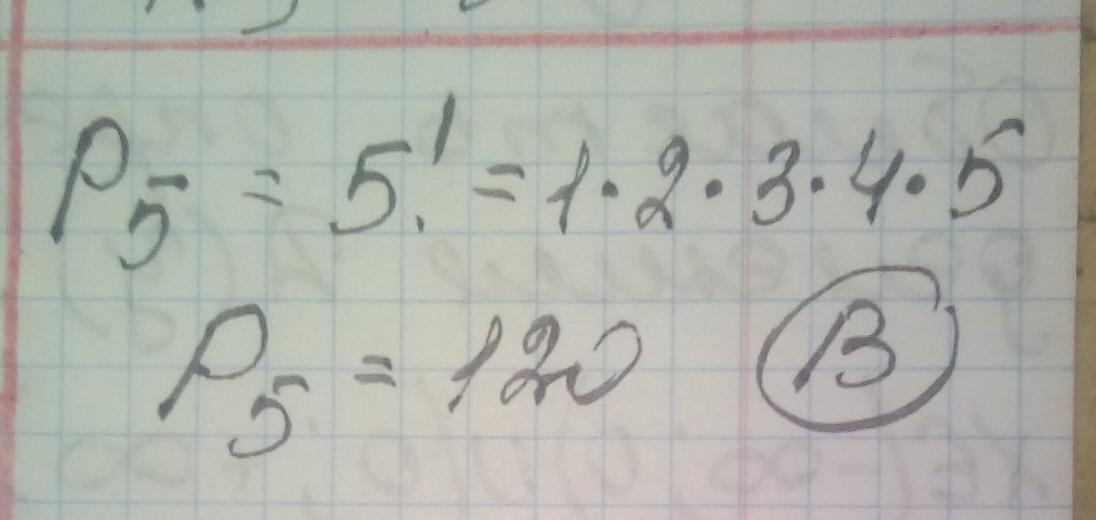 P₅ = 5! = 1·2·3·4·5
P₅ = 120 В